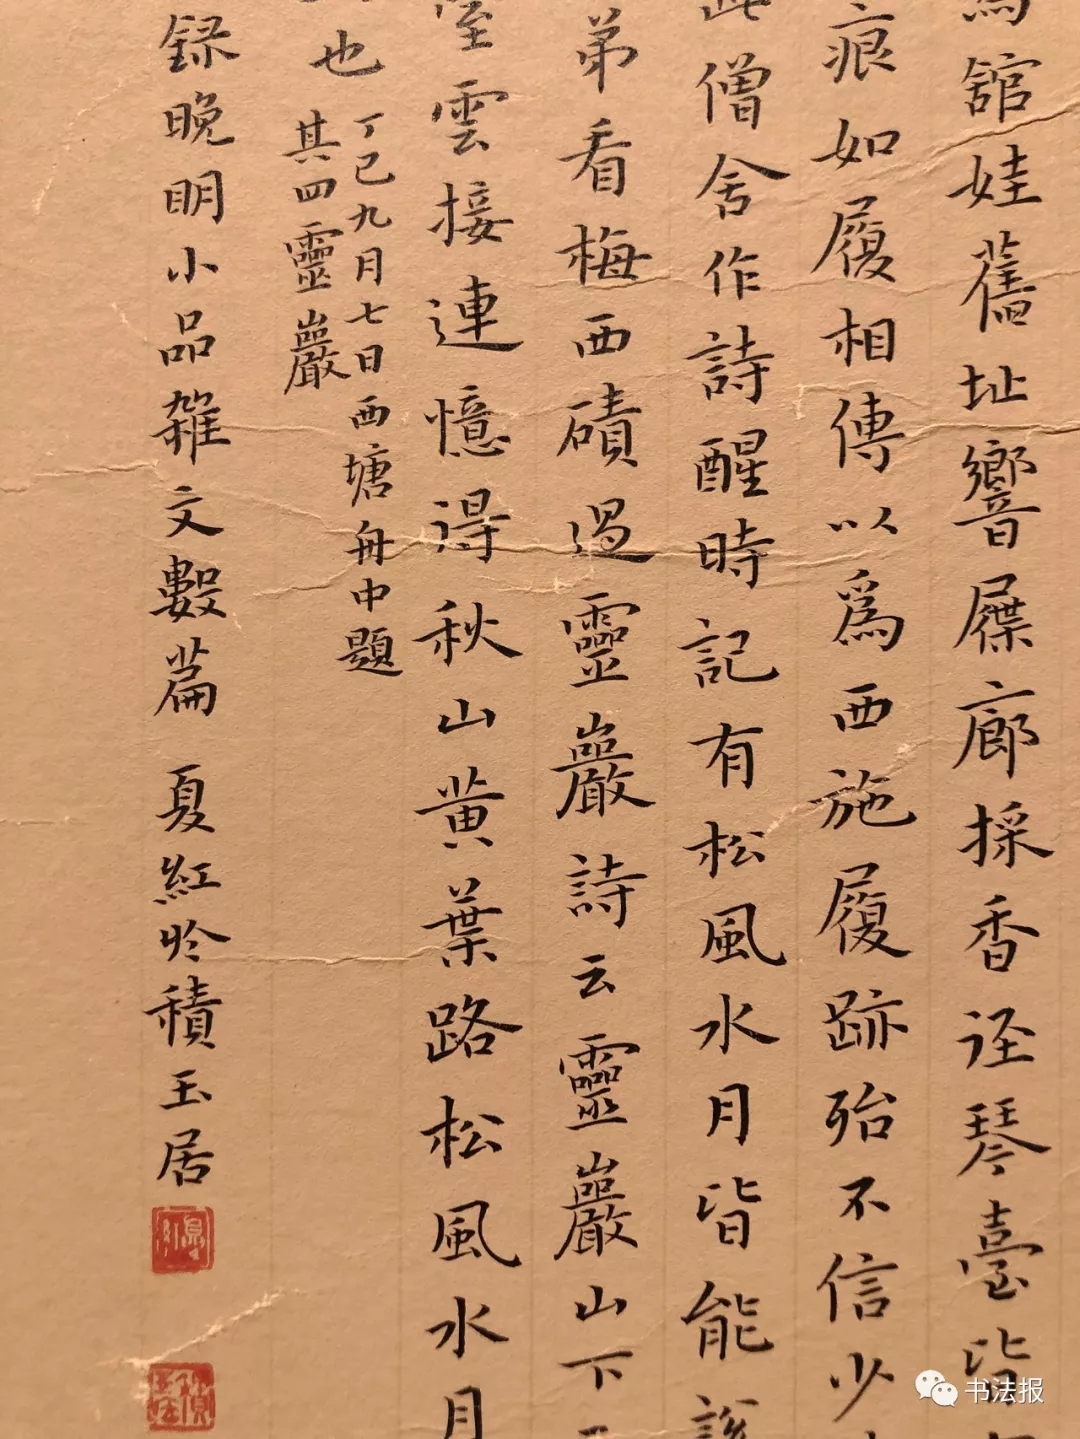 館娃舊址響屧廊採香逕琴臺皆
痕如履相傳以為西施履跡殆不信少
僧舍作詩醒時記有松風水月皆能說
弟看梅西磧過靈巖詩云靈巖山下
雲接連憶得秋山黃葉路松風水月
也
丁巳九月七日西塘舟中題
其四靈巖
録晚明小品雜文數篇 夏紅於積玉居
书法报